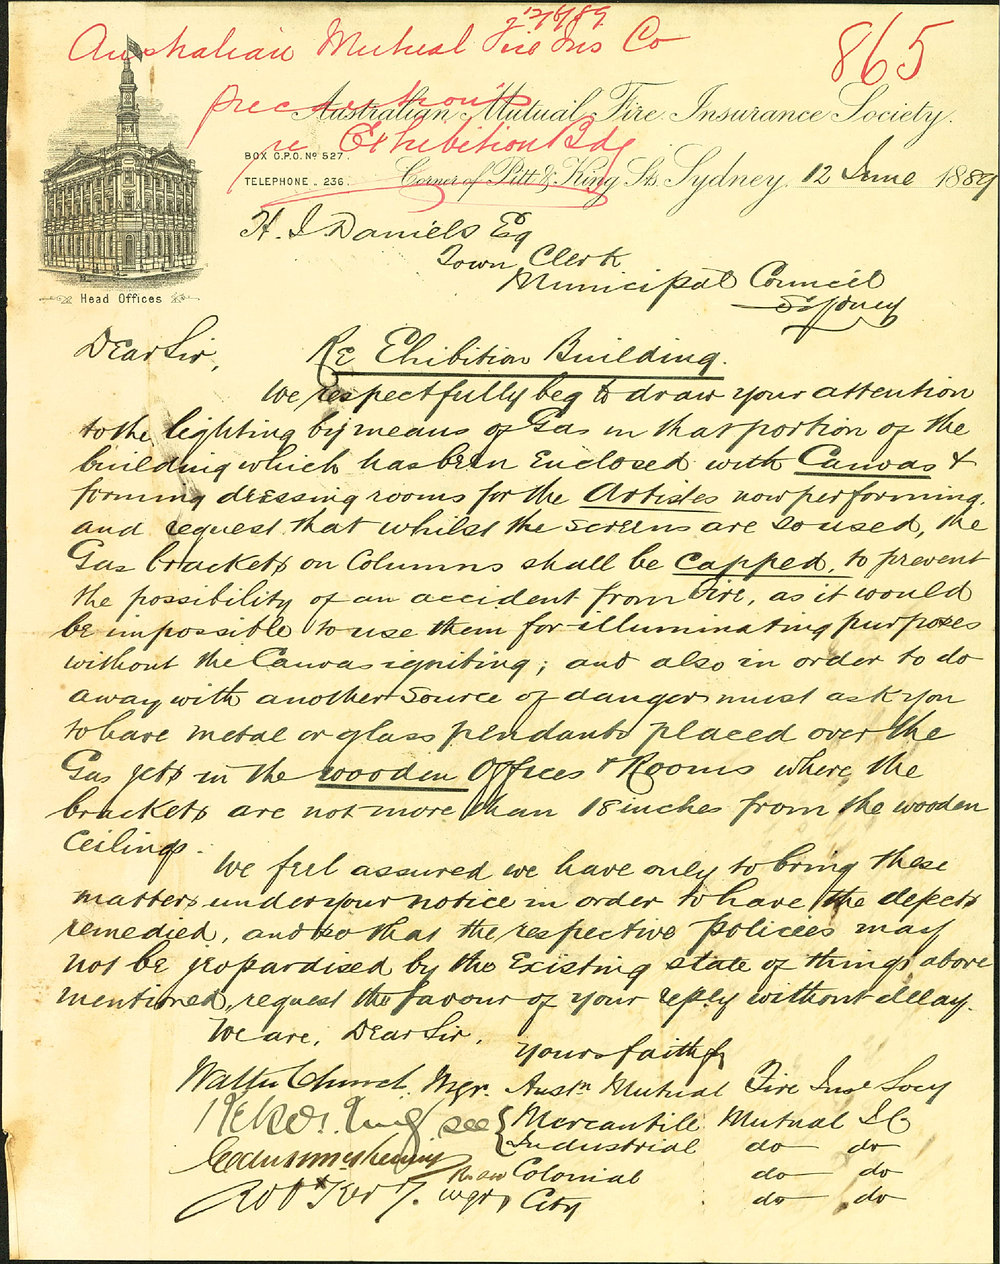 12/6/89
Australian Mutual Fire Ins Co
865
precautions
re Exhibition Bdg
Australian Mutual Fire Insurance Society.
BOX G.P.O. No 527.
TELEPHONE . 236.
Corner of Pitt & King Sts. Sydney, 12 June 1889
Head Offices
H. J. Daniels Eq
Town Clerk
Municipal Council
Sydney
Dear Sir,
Re Ehibition Building.
We respectfully beg to draw your attention
to the lighting by means of Gas in that portion of the
building which has been Enclosed with Canvas &
forming dressing rooms for the Artistes now performing.
and request that whilst the screens are so used, the
Gas brackets on Columns shall be Capped, to prevent
the possibility of an accident from Fire, as it would
be impossible to use them for illuminating purposes
without the Canvas igniting; and also in order to do
away with another source of danger must ask you
to have metal or glass pendants placed over the
Gas jets in the wooden Offices & Rooms where the
brackets are not more than 18 inches from the wooden
Ceilings.
We feel assured we have only to bring these
matters under your notice in order to have the defects
remedied, and so that the respective Policies may
not be jeopardised by the Existing state of things above
mentioned, request the favour of your reply without delay.
We are, Dear Sir,
Yours faithfy
Walter Church, Mgr. Austn Mutual Fire Inse Socy
see { Mercantile Mutual I C
Industrial do do
Colonial do do
Mgr, City do do